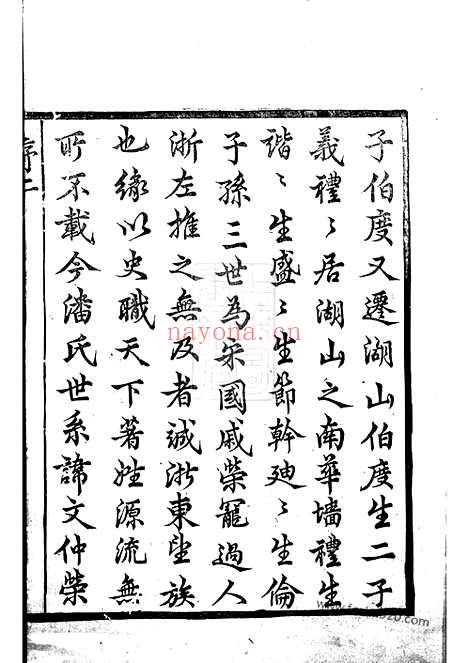 子伯度又遷湖山伯度生二子
義禮〻居湖山之南華墻禮生
諧〻生盛〻生節幹廸〻生倫
子孫三世為宋國戚榮寵過人
浙左推之無及者誠浙東望族
也緣以史職天下著姓源流無
所不載今潘氏世系諱文仲榮
序二
nayona.cn